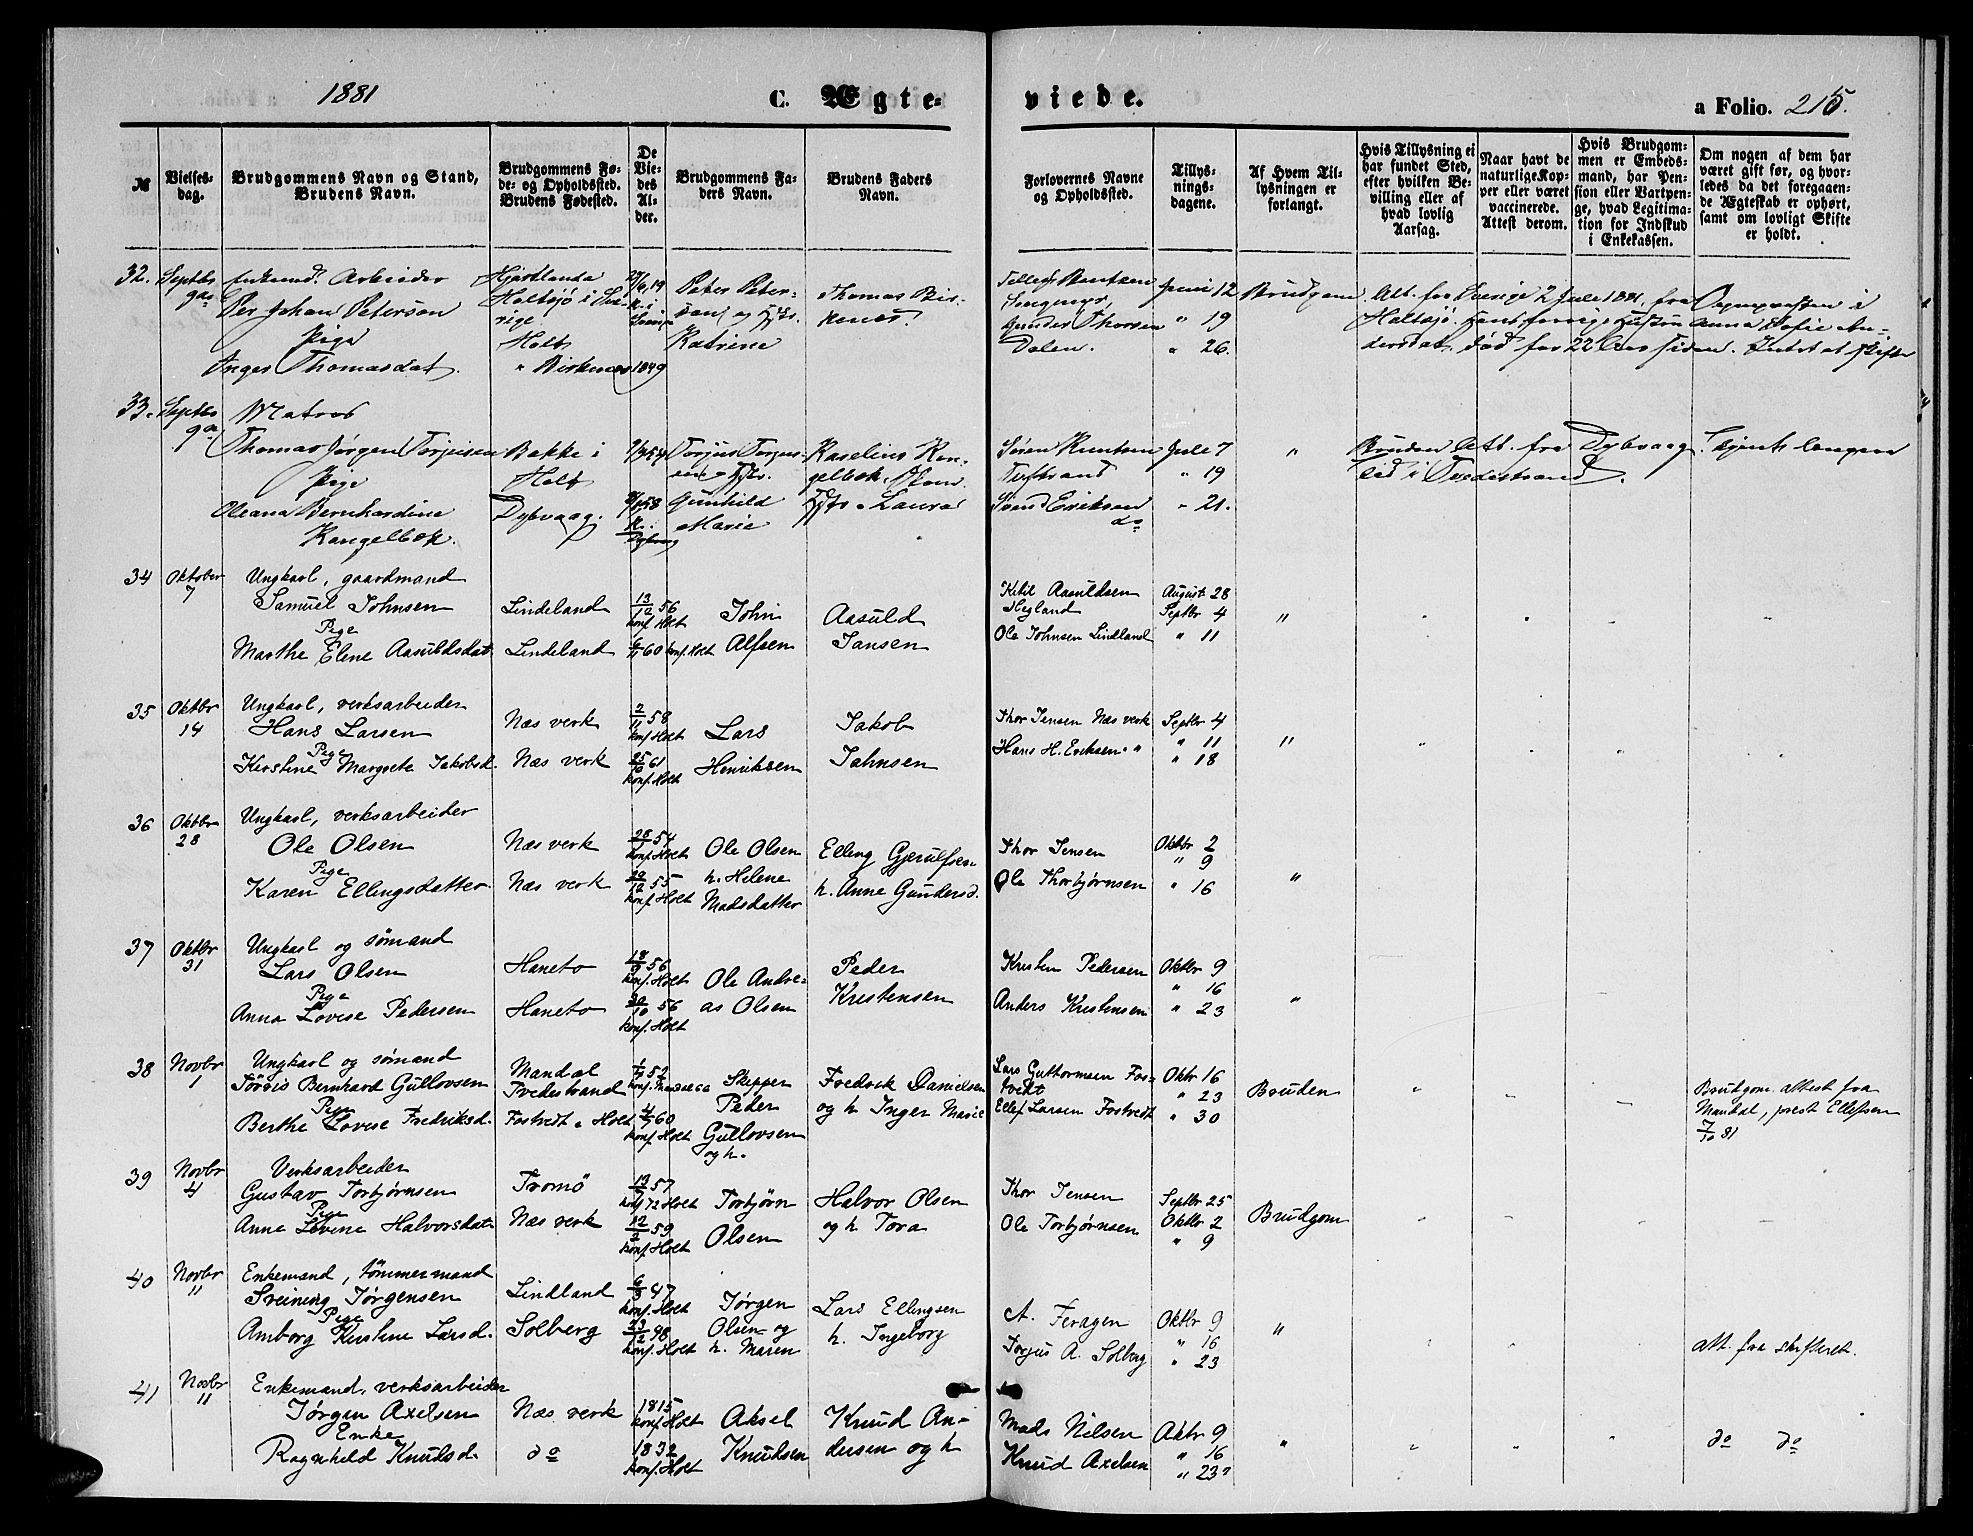 1881
C. Ægte-
viede.
a Folio. 215.
№
Vielses-
dag.
Brudgommens Navn og Stand,
Brudens Navn.
Brudgommens Fø-
de- og Opholdssted.
Brudens Fødested.
De
Vie-
des
Al-
der.
Brudgommens Fa-
ders Navn.
Brudens Faders
Navn.
Forlovernes Navne
og Opholdssted.
Tillys-
nings-
dagene.
Af Hvem Til-
lysningen er
forlangt.
Hvis Tillysning ei
har fundet Sted,
efter hvilken Be-
villing eller af
hvad lovlig
Aarsag.
Naar havt de
naturlige Kop-
per eller været
vaccinerede.
Attest derom.
Hvis Brudgom-
men er Embeds-
mand, har Pen-
sion eller Vartpen-
ge, hvad Legitima-
tion for Indskud
i Enkekassen.
Om nogen af dem har
været gift før, og hvor-
ledes da det foregaaen-
de Ægteskab er ophørt,
samt om lovligt Skifte
er holdt.
32. Septbr Enkemd. Arbeider
Per Johan Peterson
Pige
Inger Thomasdat.
Holt
" Birkenes 1849
Peter Peter-
Katrine
Thomas Bir-
kenes.
Gunder Thorsen
Dalen.
Juni 12
" 19
" 26.
Brudgom
33. Septbr Matros
Thomas Jørgen Torjusen
Pige
Oleana Bernhardine
Kangelbok.
Bakke i
Holt
Dybvaag.
Gunhild
Marie
Søren Knutsen
Svend Eriksen
do
Jule 7
" 19
" 21.
"
Bruden Att. fra Dybvaag.
tid i Tvedestrand.
34 Oktober 7
Ungkarl, gaardmand
Samuel Johnsen
Pige
Marthe Elene Aasuldsdat.
Lindeland
Lindeland
13/12 56
konf. Holt
6/11 60 konf. Holt
John
Alfsen
Aasuld
Jansen
Ketil Aasuldsen
Hegland
Ole Johnsen Lindland
August 28
Septbr 4
" 11
"
35 Oktbr 14
Ungkarl, verksarbeider
Hans Larsen
Pige
Kirstine Margrete Jakobsd.
Næs verk
Næs verk
2/11 58
konf. Holt
konf. Holt
Lars
Henriksen
Jakob
Jahnsen
Thor Jensen Næs verk
Hans H. Eriksen "
Septbr 4
" 11
" 18
"
36 Oktbr 28
Ungkarl, verksarbeider
Ole Olsen
Pige
Karen Ellingsdatter
Næs verk
Næs verk
konf. Holt
konf. Holt
Ole Olsen
h. Helene
Madsdatter
Elling Gjerulfsen
h. Anne Gundersd.
Thor Jensen
Ole Thorbjørnsen
Oktbr 2
" 9
" 16
"
37 Oktbr 31
Ungkarl og sømand
Lars Olsen
Pige
Anna Lovise Pedersen
Haneto
Haneto
konf. Holt
konf. Holt
Ole Andre-
as Olsen
Peder
Kristensen
Kristen Pedersen
Anders Kristensen
Oktbr 9
" 16
" 23
"
38 Novbr 1
Ungkarl og sømand
Jørgis Bernhard Gullovsen
Pige
Berthe Lovise Fredriksd.
Mandal
Tvedestrand
Fostvedt i Holt
konf. Holt
Skipper
Peder
Gullovsen
og h.
Fredrik Danielsen
og h Inger Marie
Lars Guttormsen Fos-
tvedt
Ellef Larsen Fostvedt
Oktbr 16
" 23
" 30
Bruden
Brudgom. attest fra
Mandal, prest Ellefsen
7/10 81
39 Novbr 4
Verksarbeider
Gustav Torbjørnsen
Pige
Anne Lovine Halvorsdat.
Tromö
Næs verk
konf. 72 Holt
12/2 59
konf. Holt
Torbjørn
Olsen
Halvor Olsen
og h Tora
Thor Jensen
Ole Torbjørnsen
Septbr 25
Oktbr 2
" 9
Brudgom
40 Novbr 11
Enkemand, tømmermand
Sveining Jørgensen
Pige
Amborg Kirstine Larsd.
Lindland
Solberg
konf. Holt
konf. Holt
Jørgen
Olsen og
h. Maren
Lars Ellingsen
h. Ingeborg
A. Feragen
Torjus A. Solberg
Oktbr 9
" 16
" 23
"
att. fra skifteret.
41 Novbr 11
Enkemand, verksarbeider
Jørgen Axelsen
Enke
Ragnhild Knudsd.
Næs verk
do
1815
konf. Holt
1832
konf. Holt
Aksel
Knudsen
Knud An-
dersen og h
Mads Nilsen
Knud Axelsen
Oktbr 9
" 16
" 23
"
do do